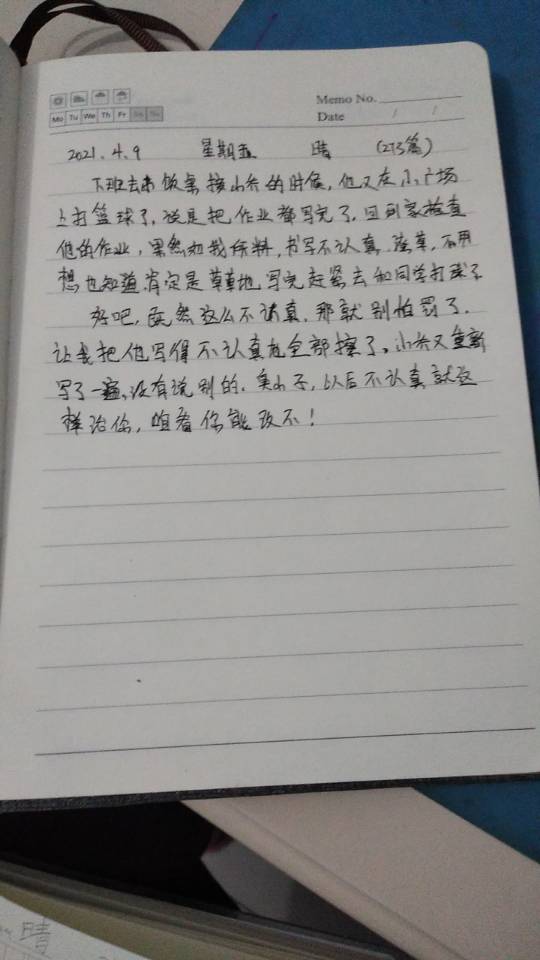 Memo No.
Mo Tu We Th Fr Sa Su
Date / /
2021.4.9 星期五 晴 (273篇)
下班去小饭桌接小齐的时候,他又在小广场
上打篮球了,说是把作业都写完了,回到家检查
他的作业,果然如我所料,书写不认真,潦草,不用
想也知道肯定是草草地写完赶紧去和同学打球了
好吧,既然这么不认真,那就别怕罚了,
让我把他写得不认真的全部擦了。小齐又重新
写了一遍,没有说别的,臭小子,以后不认真就这
样治你,咱看你能改不!
晴